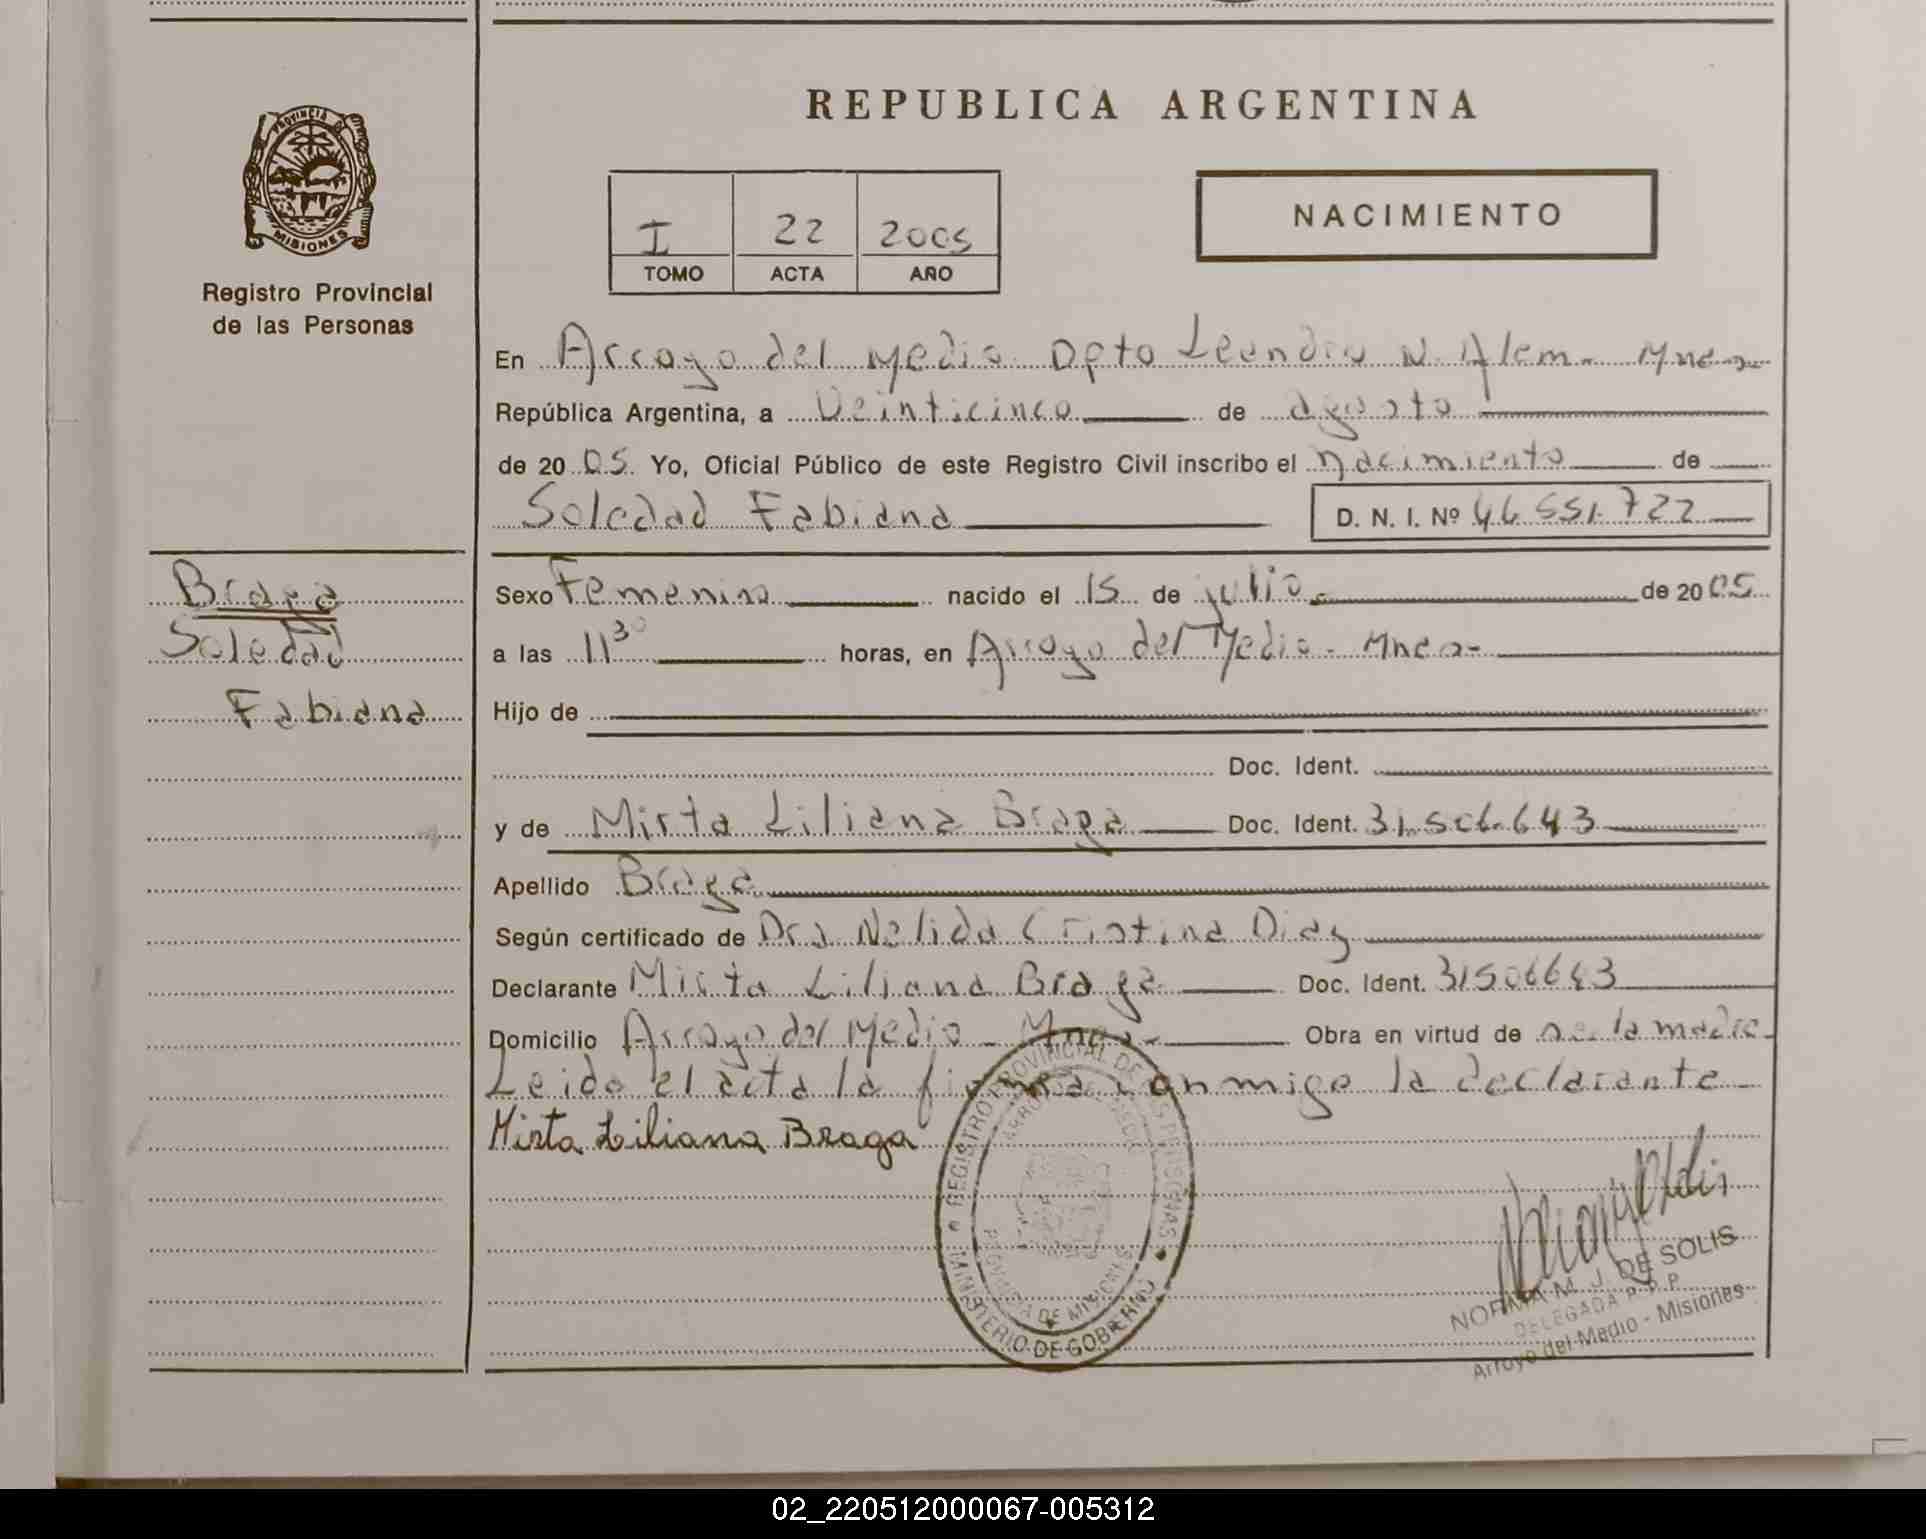 REPUBLICA ARGENTINA
PROVINCIA DE
MISIONES
Registro Provincial
de las Personas
I 22 2005
TOMO ACTA AÑO
NACIMIENTO
En Arroyo del Medio Dpto Leandro N. Alem - Mnes-
República Argentina, a Veinticinco de agosto
de 2005 Yo, Oficial Público de este Registro Civil inscribo el nacimiento de
Soledad Fabiana D. N. I. Nº 46 551.722
Braga
Soledad
Fabiana
Sexo Femenino nacido el 15 de julio de 2005
a las 11 30 horas, en Arroyo del Medio - Mnes-
Hijo de
Doc. Ident.
y de Mirta Liliana Braga Doc. Ident. 31.506.643
Apellido Braga
Según certificado de Dra Nelida Cristina Diaz
Declarante Mirta Liliana Braga Doc. Ident. 31506643
Domicilio Arroyo del Medio - Mnes- Obra en virtud de la madre-
Leida el acta la firma conmigo la declarante-
Mirta Liliana Braga
REGISTRO PROVINCIAL DE LAS PERSONAS
MINISTERIO DE GOBIERNO
PROVINCIA DE MISIONES
NORMA M. J. DE SOLIS
DELEGADA R.P.P.
Arroyo del Medio - Misiones
02_220512000067-005312